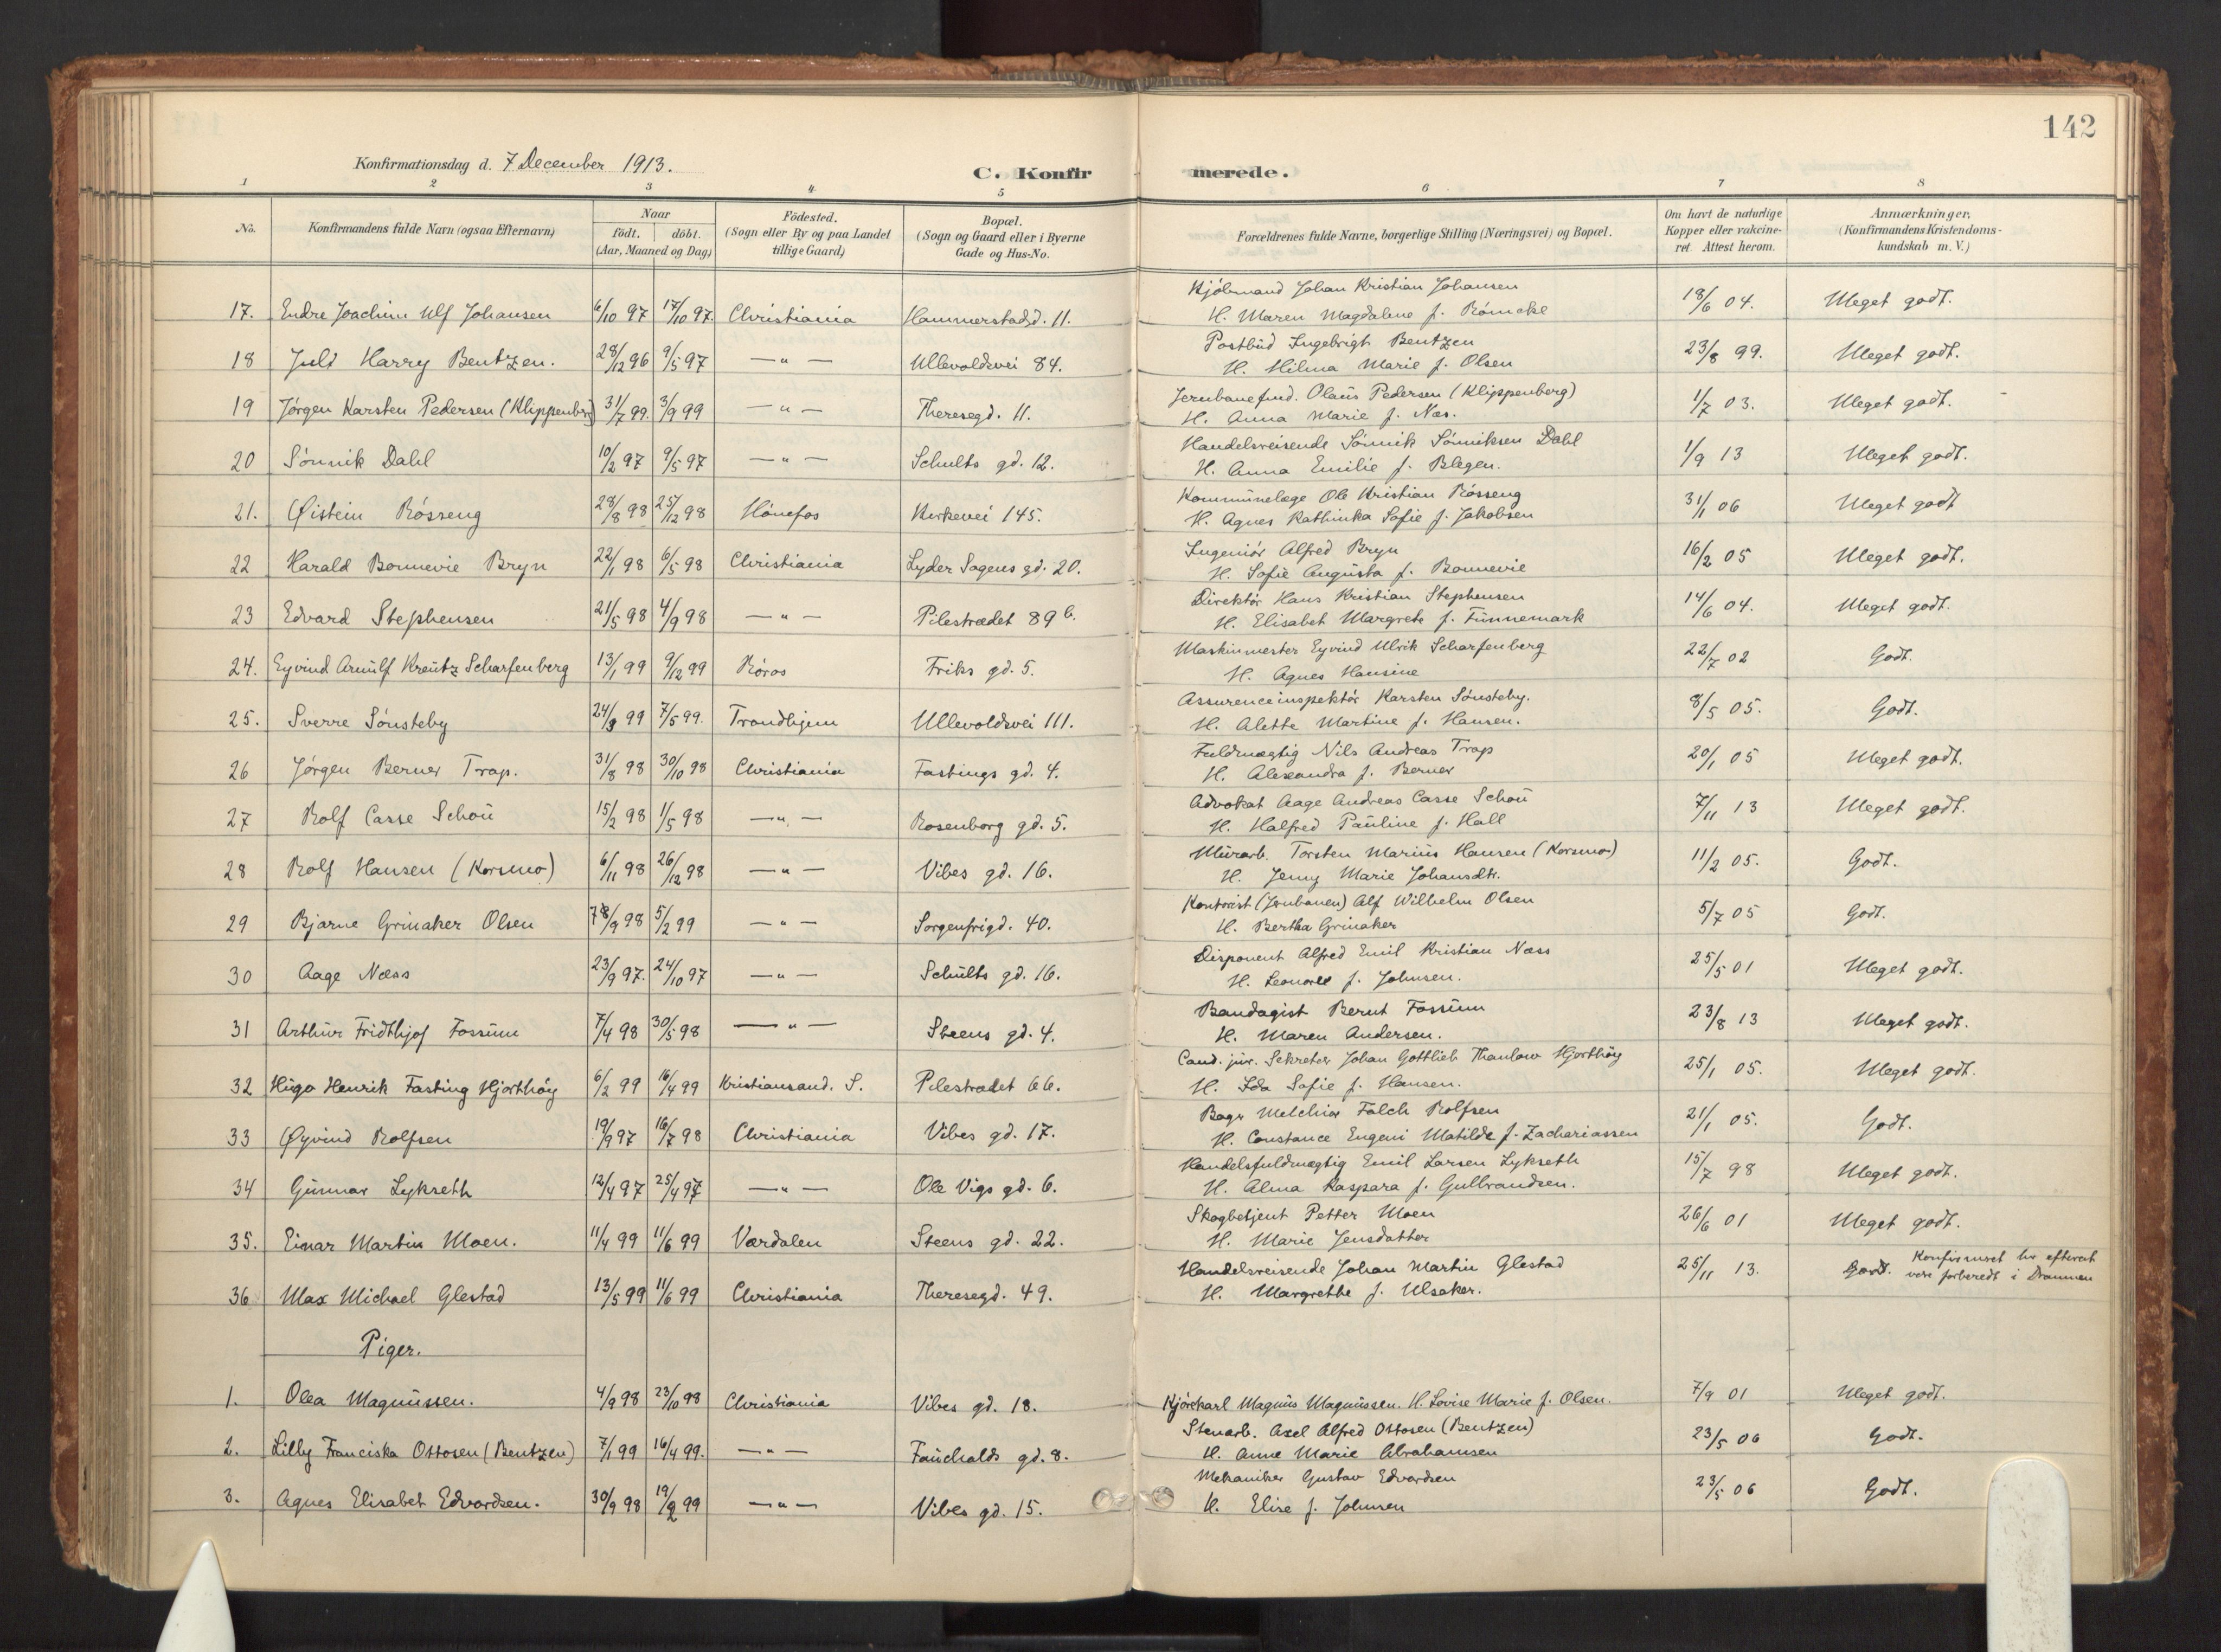 142
Konfirmationsdag d. 7 December 1913.
C. Konfirmerede.
1 2 3 4 5 6 7 8
No. | Konfirmandens fulde Navn (ogsaa Efternavn) | Naar födt. döbt. (Aar, Maaned og Dag) | Födested. (Sogn eller By og paa Landet tillige Gaard) | Bopæl. (Sogn og Gaard eller i Byerne Gade og Hus-No. | Forældrenes fulde Navne, borgerlige Stilling (Næringsvei) og Bopæl. | Om havt de naturlige Kopper eller vakcineret. Attest herom. | Anmærkninger. (Konfirmandens Kristendomskundskab m. V.)
17. Endre Joachim Ulf Johansen 6/10 97 17/10 97. Christiania Hammerstadgd. 11. Kjölmand Johan Kristian Johansen 18/6 04. Meget godt.
H. Maren Magdalene f. Römcke
18 Juls Harry Bentzen. 28/12 96 9/5 97 —"— Ullevoldsvei 84. Postbud Ingebrigt Bentzen 23/8 99. Meget godt.
H. Hilma Marie f. Olsen
19 Jørgen Karsten Pedersen (Klippenberg) 31/7 99. 3/9 99 —"— Theresegd. 11. Jernbanefund. Olaus Pedersen (Klippenberg) 1/7 03. Meget godt.
H. Anna Marie f. Næs.
20 Sönnik Dahl 10/2 97 9/5 97 —"— Schults gd. 12. Handelsreisende Sönnik Sönniksen Dahl 1/9 13 Meget godt.
H. Anna Emilie f. Blegen.
21. Øistein Rösseng 28/8 98 25/12 98 Hönefos Kirkevei 145. Kommunelæge Ole Kristian Rösseng 31/1 06 Meget godt
H. Agnes Kathinka Sofie f. Jakobsen
22 Harald Bonnevie Bryn 22/1 98 6/5 98 Christiania Lyder Sagens gd. 20. Ingeniör Alfred Bryn 16/2 05 Meget godt.
H. Sofie Augusta f. Bonnevie
23 Edvard Stephensen 21/5 98 4/9 98 —"— Pilestrædet 89 b. Direktör Hans Kristian Stephensen 14/6 04. Meget godt.
H. Elisabet Margrete f. Funnemark
24. Eyvind Arnulf Kreutz Scharfenberg 13/1 99 9/12 99 Röros Friks gd. 5. Maskinmester Eyvind Ulrik Scharfenberg 22/7 02 Godt.
H. Agnes Hansine
25. Sverre Sönsteby 24/3 99 7/5 99. Trondhjem Ullevoldsvei 111. Assuranceinspektör Karsten Sönsteby. 8/5 05. Godt.
H. Alette Martine f. Hansen.
26 Jörgen Berner Trap. 31/8 98 30/10 98 Christiania Fastings gd. 4. Fuldmægtig Nils Andreas Trap 20/1 05 Meget godt.
H. Alexandra f. Berner
27 Rolf Casse Schou 15/2 98 1/5 98 —"— Rosenborg gd. 5. Advokat Aage Andreas Casse Schou 7/11 13 Meget godt.
H. Halfred Pauline f. Hall
28 Rolf Hansen (Korsmo) 6/11 98 26/12 98 —"— Vibes gd. 16. Murarb. Torsten Marius Hansen (Korsmo) 11/2 05. Godt.
H. Jenny Marie Johansdtr.
29 Bjarne Grinaker Olsen 8/9 98 5/2 99 —"— Sorgenfrigd. 40. Kontorist (Jernbanen) Alf Wilhelm Olsen 5/7 05 Godt.
H. Bertha Grinaker
30 Aage Næss 23/9 97. 24/10 97 —"— Schults gd. 16. Disponent Alfred Emil Kristian Næss 25/5 01 Meget godt.
H. Leonore f. Johnsen.
31 Arthur Fridthjof Fossum 7/4 98 30/5 98 —"— Steens gd. 4. Bandagist Bernt Fossum 23/8 13 Meget godt.
H. Maren Andersen.
32 Hugo Henrik Fasting Hjorthöy 6/2 99 16/4 99 Kristiansand. S. Pilestrædet 66. Cand. jur. Sekretær Johan Gottlieb Thaulow Hjorthöy 25/1 05. Meget godt.
H. Ida Sofie f. Hansen.
33 Øyvind Rolfsen 19/9 97 16/7 98 Christiania Vibes gd. 17. Bager Melchior Falch Rolfsen 21/1 05. Godt.
H. Constance Eugeni Matilde f. Zachariassen
34 Gunnar Lykseth 12/4 97 25/4 97 —"— Ole Vigs gd. 6. Handelsfuldmægtig Emil Larsen Lykseth 15/7 98 Meget godt.
H. Alma Kaspara f. Gulbrandsen.
35. Einar Martin Moen. 11/4 99 11/6 99 Værdalen Steens gd. 22. Skogbetjent Petter Moen 26/6 01 Meget godt.
H. Marie Jensdatter
36 Max Michael Glestad 13/5 99 11/6 99 Christiania Theresegd. 49. Handelsreisende Johan Martin Glestad 25/11 13. Godt. Konfirmeret her efterat
H. Margrethe f. Ulsaker. være forberedt i Drammen
Piger.
1. Olea Magnussen. 4/9 98 23/10 98 Christiania Vibes gd. 18. Kjörekarl Magnus Magnussen. H. Lovise Marie f. Olsen. 7/9 01 Meget godt.
2. Lilly Franciska Ottosen (Bentzen) 7/1 99 16/4 99. —"— Fauchalds gd. 8. Stenarb. Axel Alfred Ottosen (Bentzen) 23/5 06 Godt.
H. Anne Marie Abrahamsen
3. Agnes Elisabet Edvardsen. 30/9 98 19/2 99 —"— Vibes gd. 15. Mekaniker Gustav Edvardsen 23/5 06 Godt.
H. Elise f. Johnsen